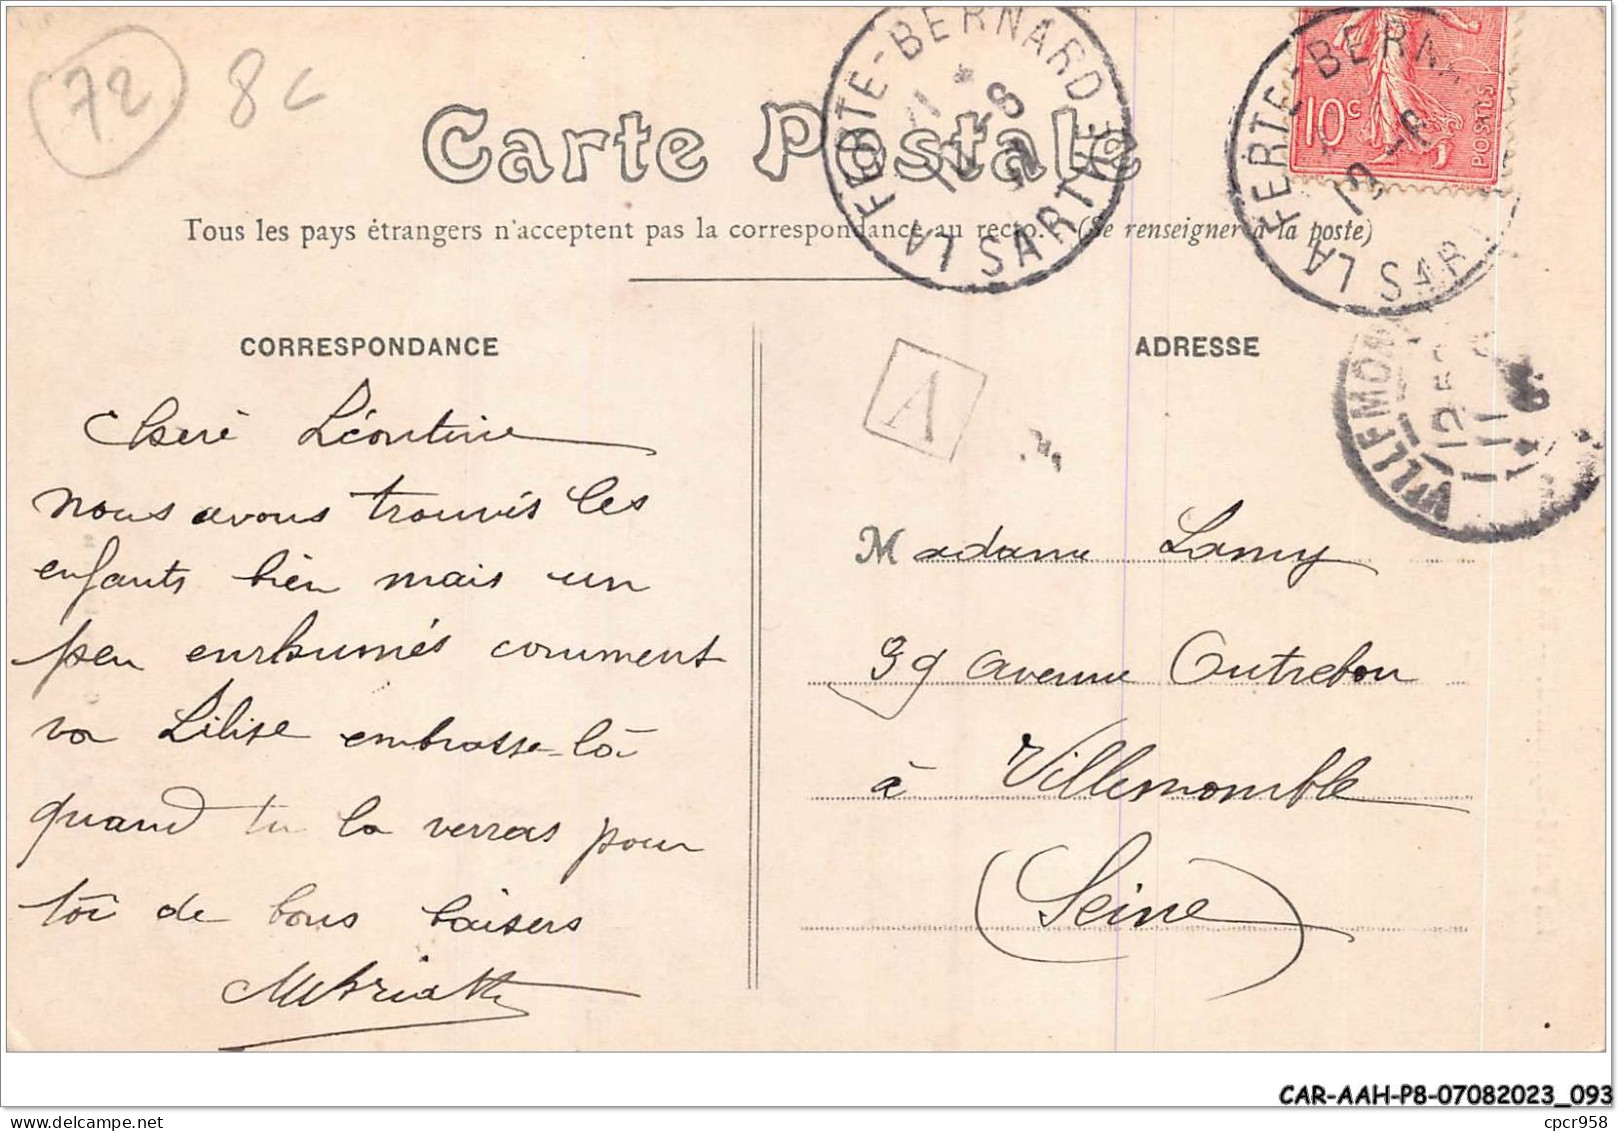 72 8c
Carte Postale
Tous les pays étrangers n'acceptent pas la correspondance au recto. (Se renseigner à la poste)
LA FERTE-BERNARD
SARTHE
LA FERTE-BERNA
SAR
10c
POSTES
VILLEMOM
CORRESPONDANCE
Cheré Léontine
nous avons trouvés les
enfants bien mais un
peu enrhumés comment
va Lilise embrasse-là
quand tu la verras pour
toi de bons baisers
A
ADRESSE
Madame Lamy
39 avenue Outrebon
à Villemomble
(Seine)
CAR-AAH-P8-07082023_093
cpcr958